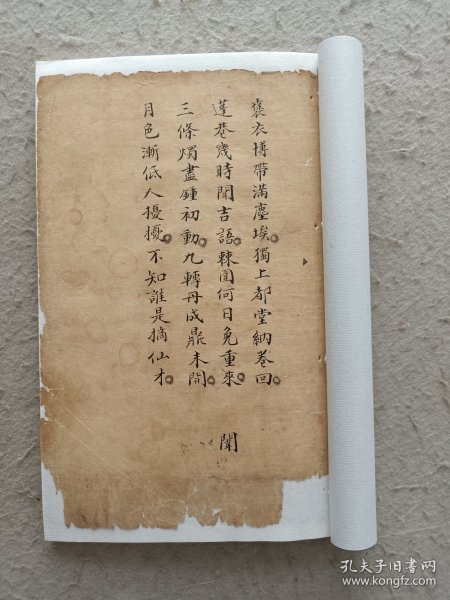 襃衣博帶滿塵埃。獨上都堂納卷回。
蓬巷幾時聞吉語。棘圍何日免重來。
三條燭盡鍾初動。九轉丹成鼎未開。
月色漸低人擾擾。不知誰是摘仙才。
聞
孔夫子旧书网
www.kongfz.com